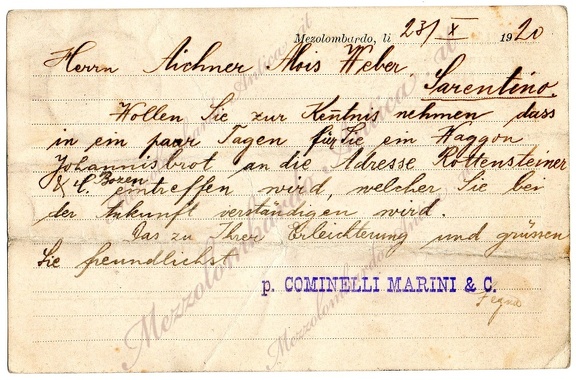 Mezolombardo, li 23/X 1920
Herrn Aichner Alois Weber,
Sarentino.
Wollen Sie zur Kentnis nehmen dass
in ein paar Tagen für Sie ein Waggon
Johannisbrot an die Adresse Rottensteiner
& C. Bozen eintreffen wird, welcher Sie bei
der Ankunft verständigen wird.
Das zu Ihrer Erleichterung und grüssen
Sie freundlichst
p. COMINELLI MARINI & C.